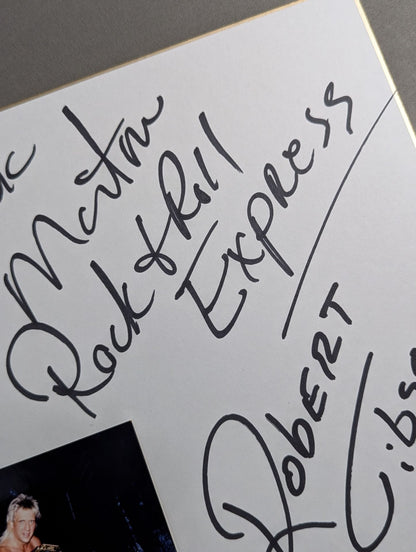 Morton
Rock & Roll
EXPRESS
ROBERT
Gibso